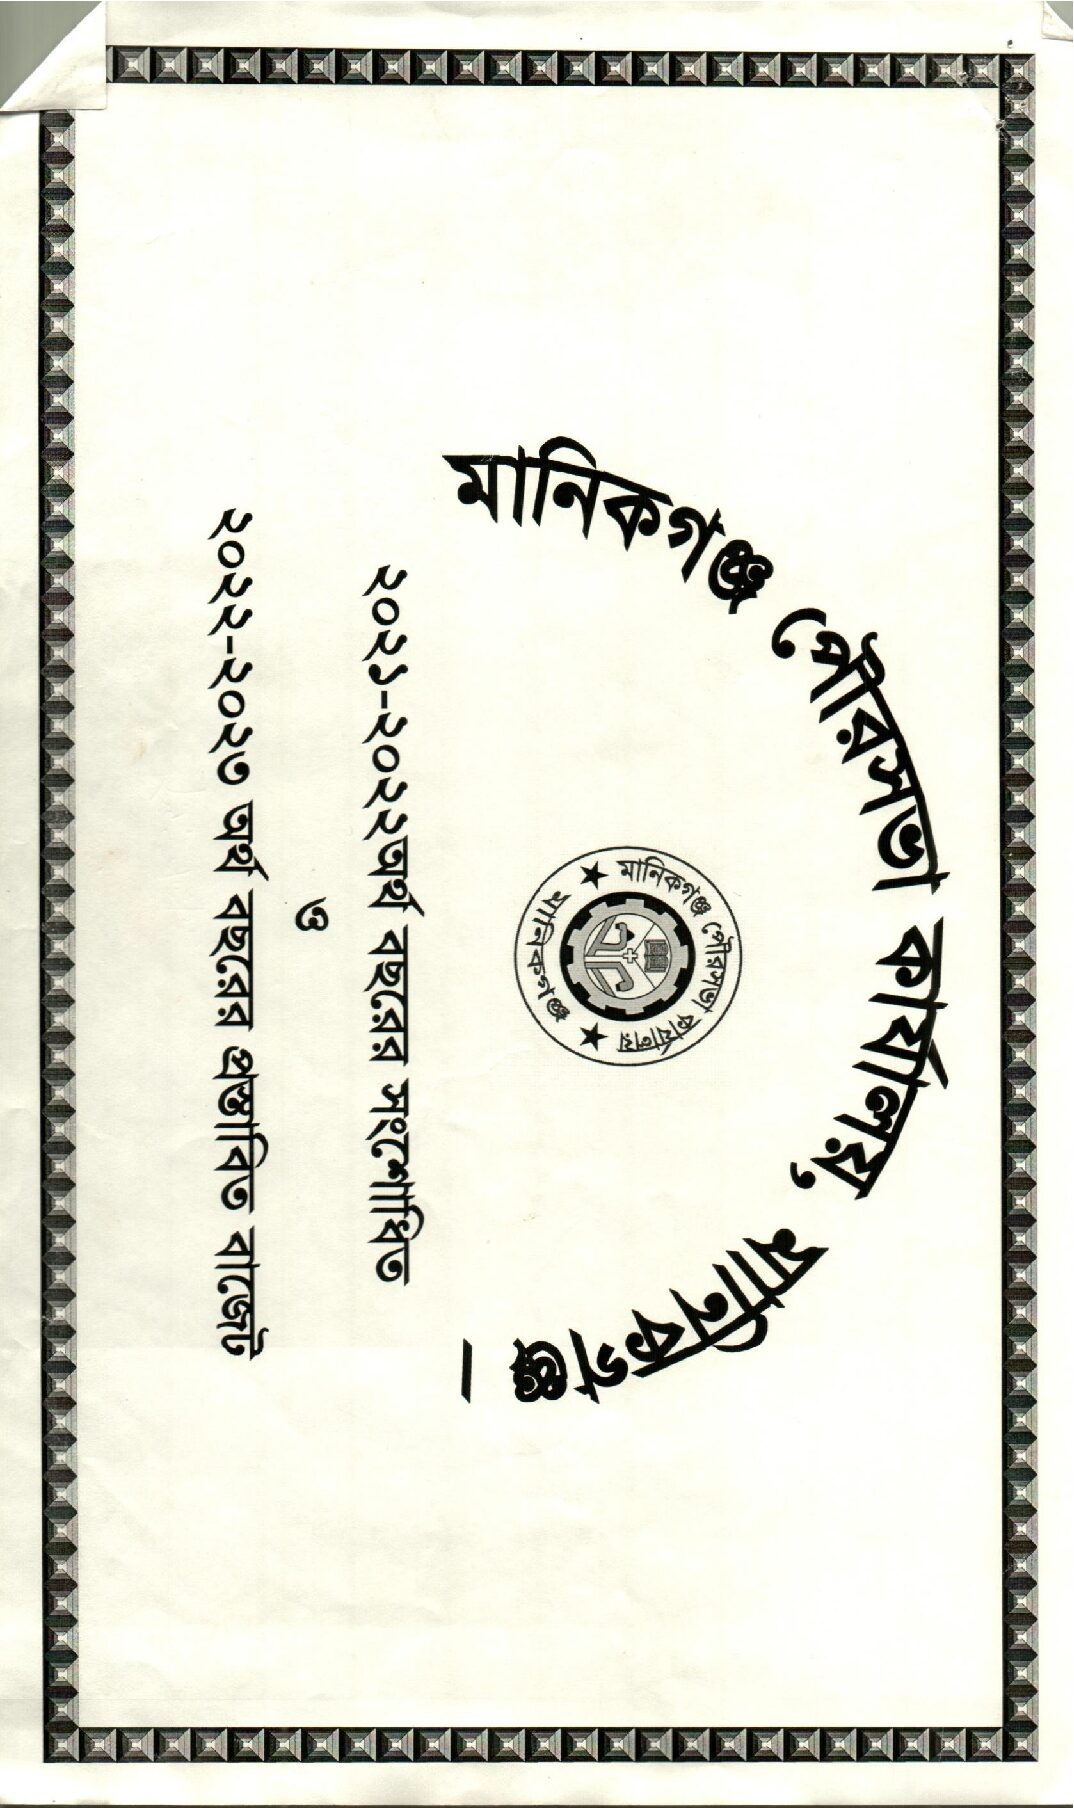 মানিকগঞ্জ পৌরসভা কার্যালয়, মানিকগঞ্জ ।
মানিকগঞ্জ পৌরসভা কার্যালয়
মানিকগঞ্জ
২০২১-২০২২অর্থ বছরের সংশোধিত
ও
২০২২-২০২৩ অর্থ বছরের প্রস্তাবিত বাজেট